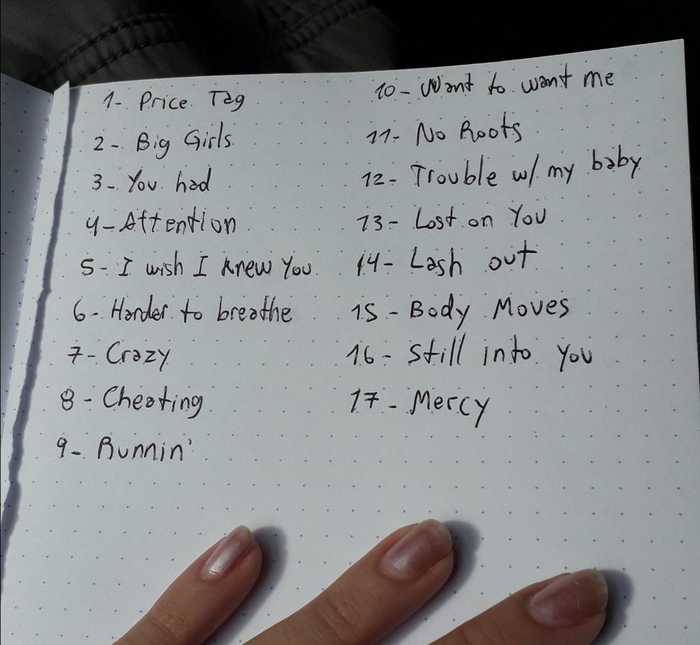 1- Price Tag
2- Big Girls
3- You had
4- Attention
5- I wish I knew You
6- Harder to breathe
7- Crazy
8- Cheating
9- Runnin'
10- Want to want me
11- No Roots
12- Trouble w/ my baby
13- Lost on You
14- Lash out
15- Body Moves
16- Still into You
17- Mercy